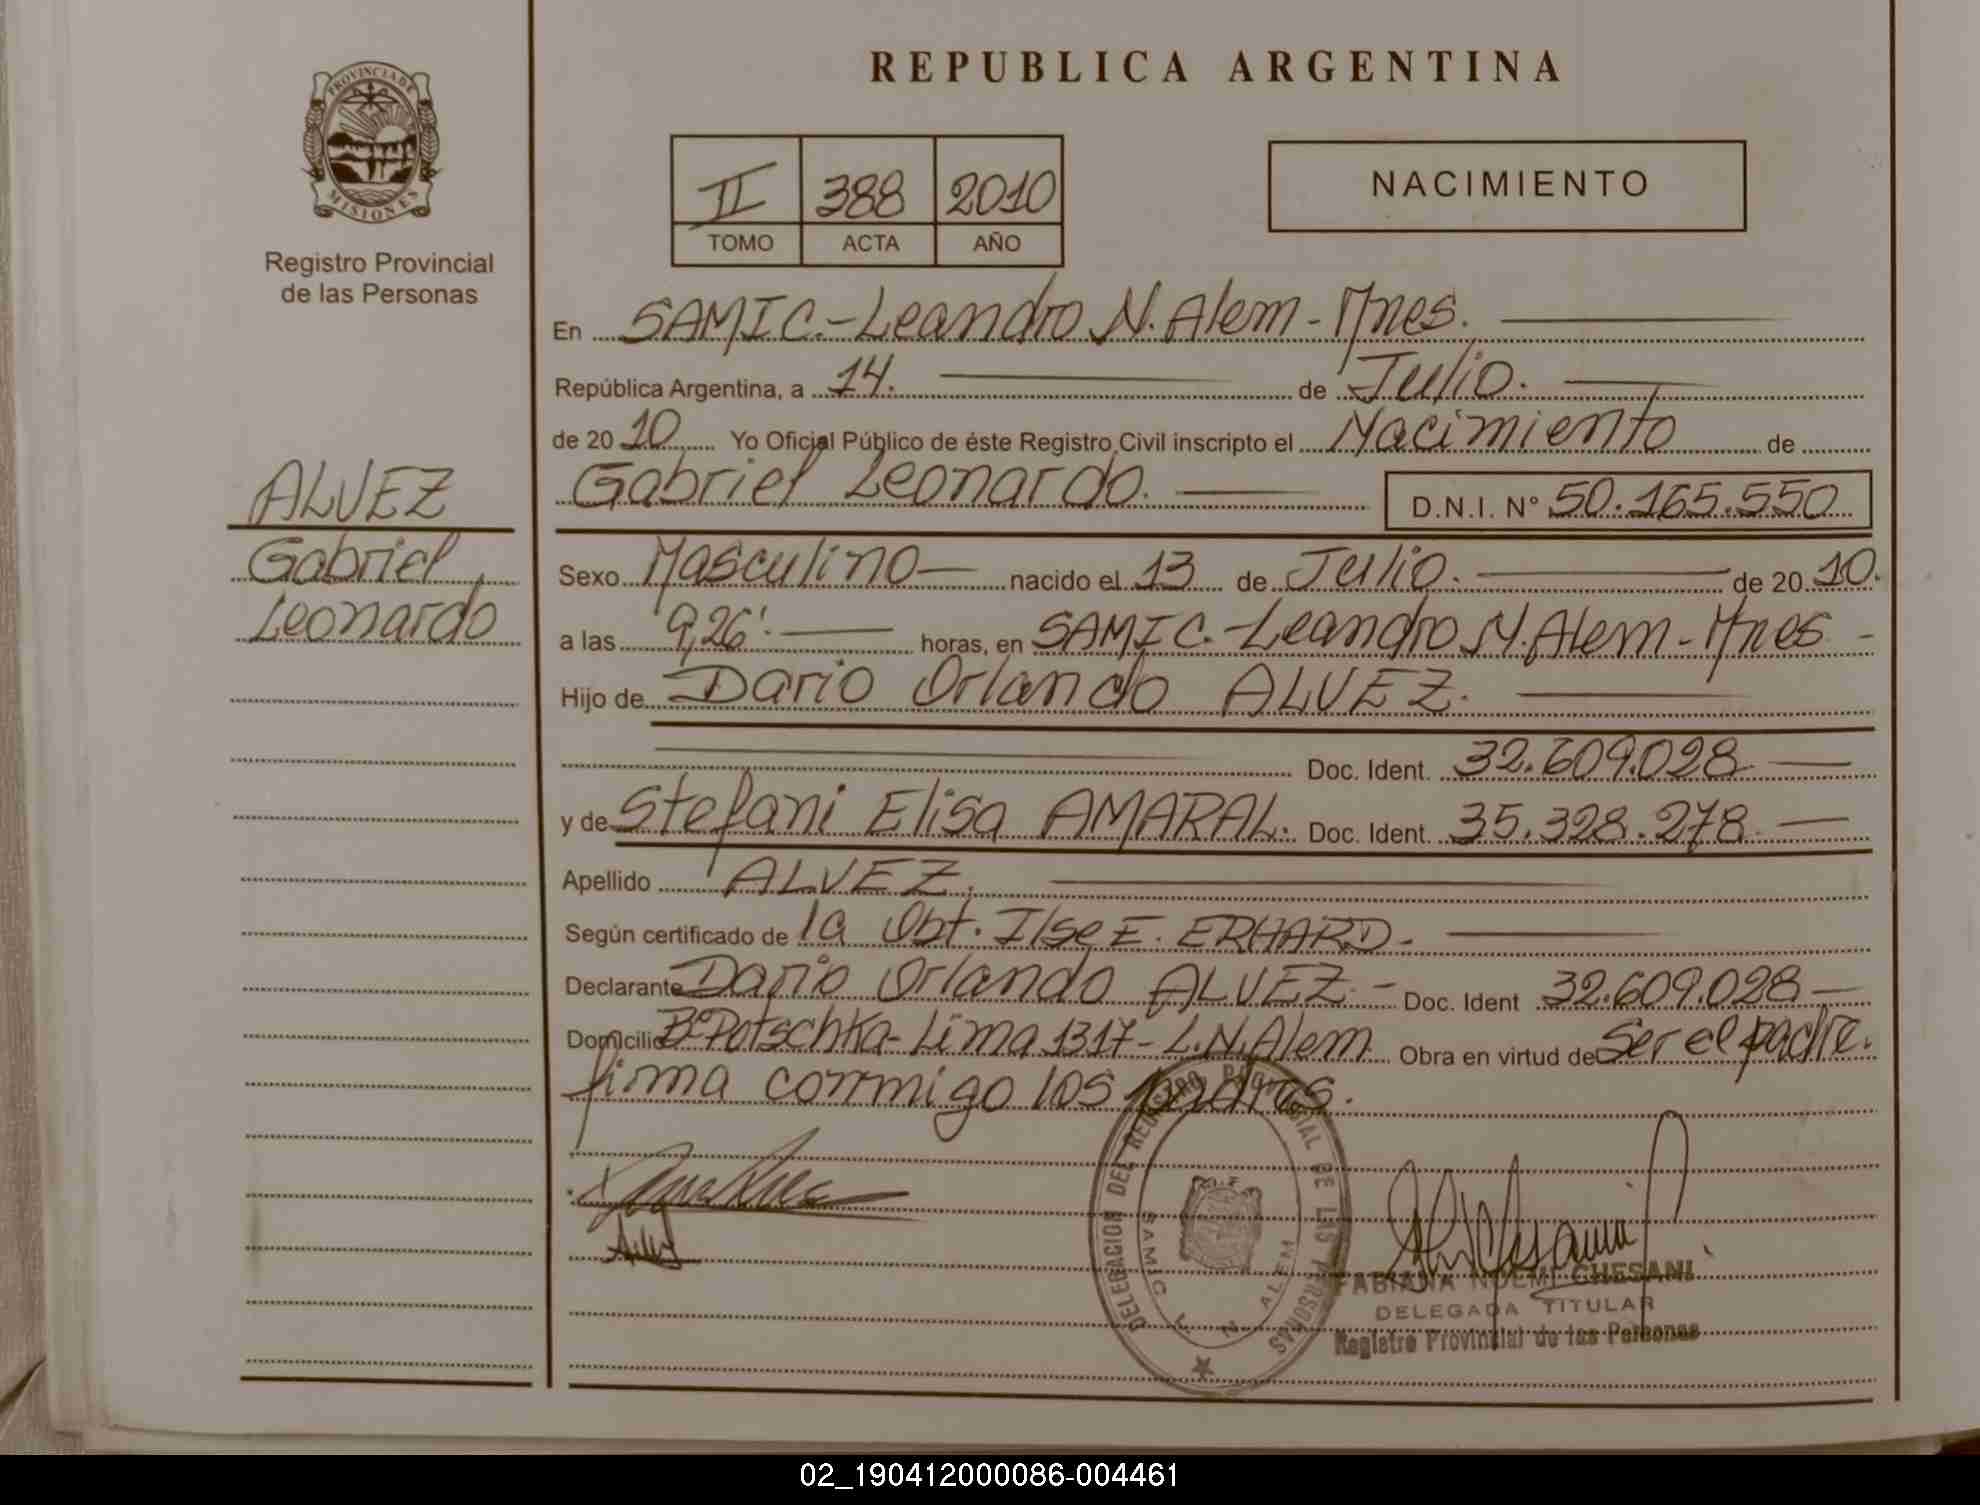 REPUBLICA ARGENTINA
PROVINCIA DE
MISIONES
Registro Provincial
de las Personas
II 388 2010
TOMO ACTA AÑO
NACIMIENTO
En SAMIC.-Leandro N. Alem - Mnes.
República Argentina, a 14. de Julio.
de 20 10 Yo Oficial Público de éste Registro Civil inscripto el Nacimiento de
Gabriel Leonardo. D.N.I. N° 50.165.550
ALVEZ
Gabriel
Leonardo
Sexo Masculino nacido el 13 de Julio. de 20 10.
a las 9,26'. horas, en SAMIC.-Leandro N. Alem - Mnes -
Hijo de Dario Orlando ALVEZ.
Doc. Ident. 32.609.028
y de Stefani Elisa AMARAL. Doc. Ident. 35.328.278
Apellido ALVEZ.
Según certificado de la Obt. Ilse E. ERHARD.
Declarante Dario Orlando ALVEZ.- Doc. Ident 32.609.028
Domicilio B° Potschka - Lima 1317 - L.N. Alem Obra en virtud de Ser el padre.
firma conmigo los padres.
DELEGACION DEL REGISTRO PROVINCIAL DE LAS PERSONAS
SAMIC L N ALEM
FABIANA NOEMI GHESANI
DELEGADA TITULAR
Registro Provincial de las Personas
02_190412000086-004461